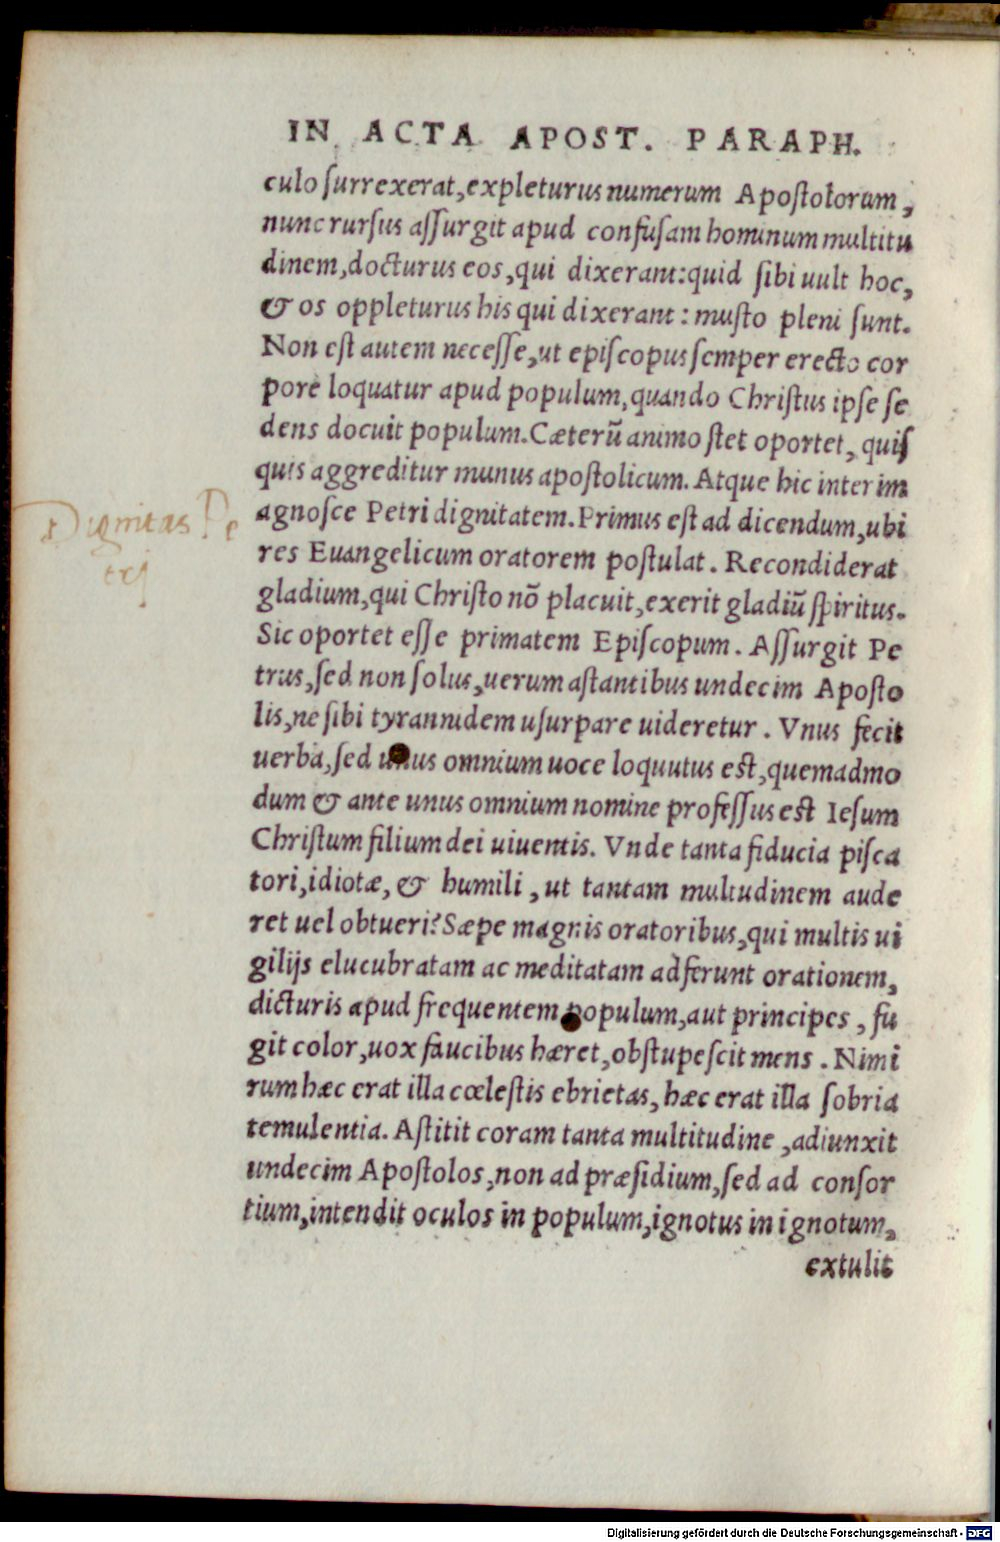 IN ACTA APOST. PARAPH.
culo surrexerat, expleturus numerum Apostolorum,
nunc rursus assurgit apud confusam hominum multitu
dinem, docturus eos, qui dixerant: quid sibi uult hoc,
& os oppleturus his qui dixerant: musto pleni sunt.
Non est autem necesse, ut episcopus semper erecto cor
pore loquatur apud populum, quando Christus ipse se
dens docuit populum. Cæterũ animo stet oportet, quis
quis aggreditur munus apostolicum. Atque hic interim
agnosce Petri dignitatem. Primus est ad dicendum, ubi
res Euangelicum oratorem postulat. Recondiderat
gladium, qui Christo nõ placuit, exerit gladiũ spiritus.
Sic oportet esse primatem Episcopum. Assurgit Pe
trus, sed non solus, uerum astantibus undecim Aposto
lis, ne sibi tyrannidem usurpare uideretur. Vnus fecit
uerba, sed unus omnium uoce loquutus est, quemadmo
dum & ante unus omnium nomine professus est Iesum
Christum filium dei uiuentis. Vnde tanta fiducia pisca
tori, idiotæ, & humili, ut tantam multudinem aude
ret uel obtueri? Sæpe magnis oratoribus, qui multis ui
gilijs elucubratam ac meditatam adferunt orationem,
dicturis apud frequentem populum, aut principes, fu
git color, uox faucibus hæret, obstupescit mens. Nimi
rum hæc erat illa cœlestis ebrietas, hæc erat illa sobria
temulentia. Astitit coram tanta multitudine, adiunxit
undecim Apostolos, non ad præsidium, sed ad consor
tium, intendit oculos in populum, ignotus in ignotum,
extulit
Dignitas Pe
trj
Digitalisierung gefördert durch die Deutsche Forschungsgemeinschaft - DFG